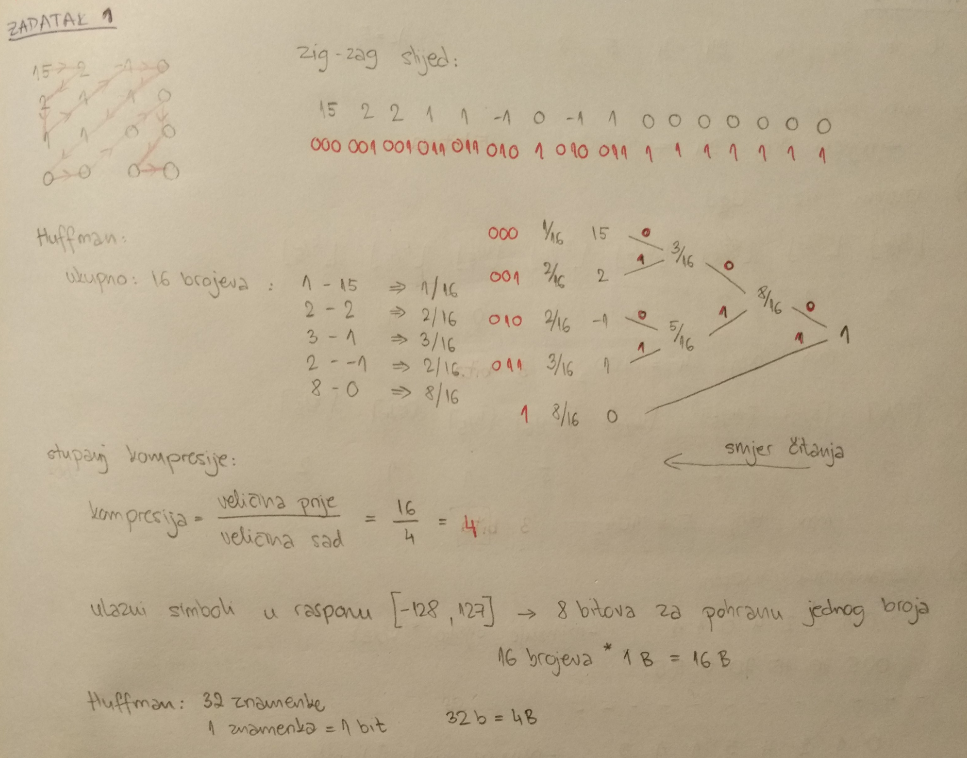 ZADATAK 1
zig-zag slijed:
15 2 -1 0
2 1 1 0
1 1 0 0
0 0 0 0
15 2 2 1 1 -1 0 -1 1 0 0 0 0 0 0 0
000 001 001 011 011 010 1 010 011 1 1 1 1 1 1 1
Huffman:
ukupno: 16 brojeva : 1 - 15 ⇒ 1/16
2 - 2 ⇒ 2/16
3 - 1 ⇒ 3/16
2 - -1 ⇒ 2/16
8 - 0 ⇒ 8/16
000 1/16 15 0
3/16 0
001 2/16 2 1
8/16 0
010 2/16 -1 0
5/16 1
011 3/16 1 1
1 1
1 8/16 0
smjer čitanja
stupanj kompresije:
kompresija = veličina prije / veličina sad = 16/4 = 4
ulazni simboli u rasponu [-128, 127] → 8 bitova za pohranu jednog broja
16 brojeva * 1 B = 16 B
Huffman: 32 znamenke
1 znamenka = 1 bit 32 b = 4B